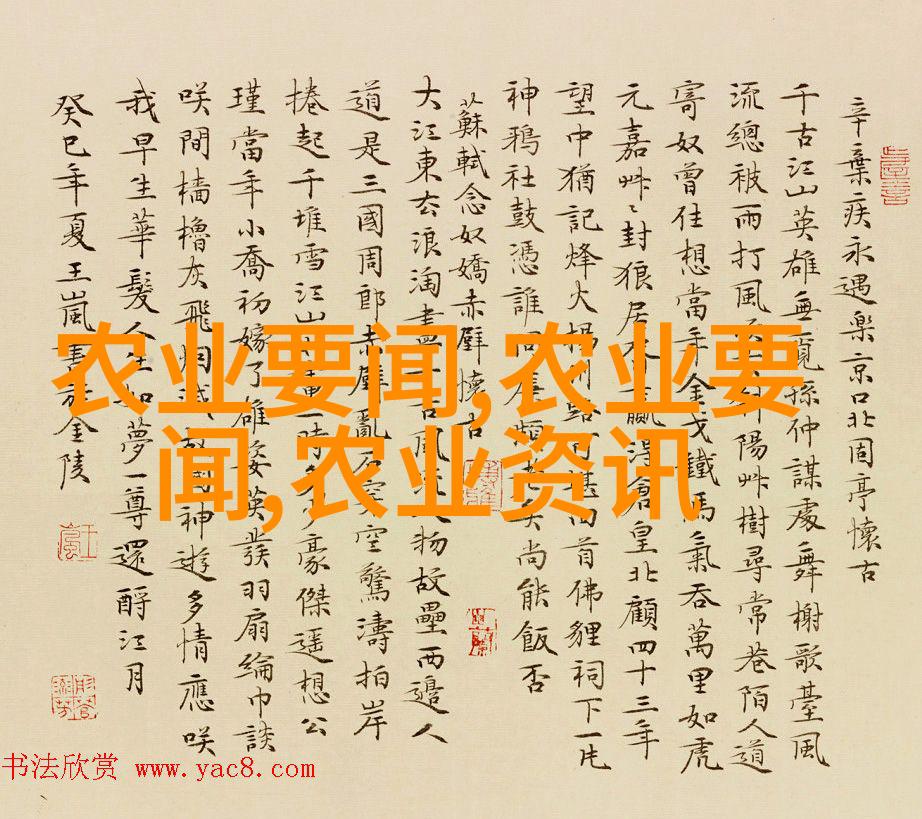 辛棄疾永遇樂京口北固亭懷古
千古江山英雄無覓孫仲謀處舞榭歌臺風
流總被雨打風斜陽艸樹尋常巷陌人道
寄奴曾住想當年金戈鐵馬氣吞萬里如虎
元嘉艸〻封狼居贏得倉皇北顧四十三年
望中猶記烽火揚州路可堪回首佛貍祠下一片
神鴉社鼓憑誰問廉頗老矣尚能飯否
蘇軾念奴嬌赤壁懷古
大江東去浪淘盡古風流人物故壘西邊人
道是三國周郎赤壁亂石穿空驚濤拍岸
捲起千堆雪江山畫一時多少豪傑遥想公
瑾當年小喬初嫁了雄姿英發羽扇綸巾談
咲間樯櫓灰飛烟滅故國神遊多情應咲
我早生華髮人生如夢一尊還酹江月
癸巳年夏王嵐書於金陵
农业要闻,农业要
闻,农业资讯
书法欣赏 www.yac8.com